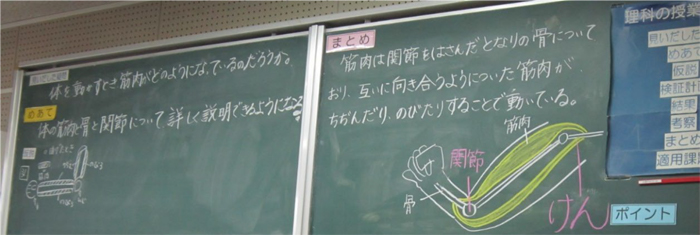 見いだした疑問
体を動かすとき筋肉がどのようになっているのだろうか。
めあて
体の筋肉や骨と関節について、詳しく説明できるようになろう
まとめ
筋肉は関節をはさんだとなりの骨について
おり、互いに向き合うようについた筋肉が
ちぢんだり、のびたりすることで動いている。
筋肉
関節
骨
けん
ポイント
理科の授業
見いだした
めあて
仮説
検証計
結果
考察
まとめ
適用課題